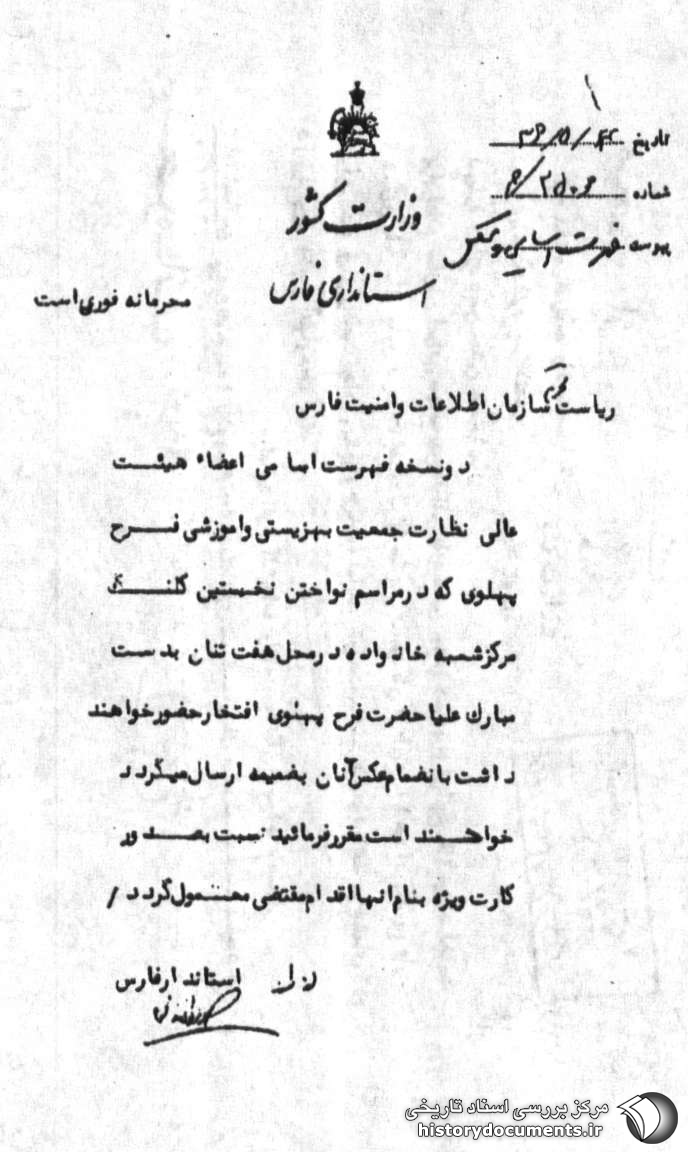 تاریخ
شماره
پیوست فهرست اسامی و عکس
وزارت کشور
استانداری فارس
محرمانه فوری است
ریاست محترم سازمان اطلاعات و امنیت فارس
دو نسخه فهرست اسامی اعضاء هیئت
عالی نظارت جمعیت بهزیستی و اموزشی فرح
پهلوی که در مراسم نواختن نخستین کلنگ
مرکز شعبه خانواده در محل هفت تنان بدست
مبارک علیاحضرت فرح پهلوی افتخار حضور خواهند
داشت بانضمام عکس آنان بضمیمه ارسال میگردد
خواهشمند است مقرر فرمائید نسبت بصدور
کارت ویژه بنام انها اقدام مقتضی معمول گردد /
استاندار فارس
مرکز بررسی اسناد تاریخی
historydocuments.ir